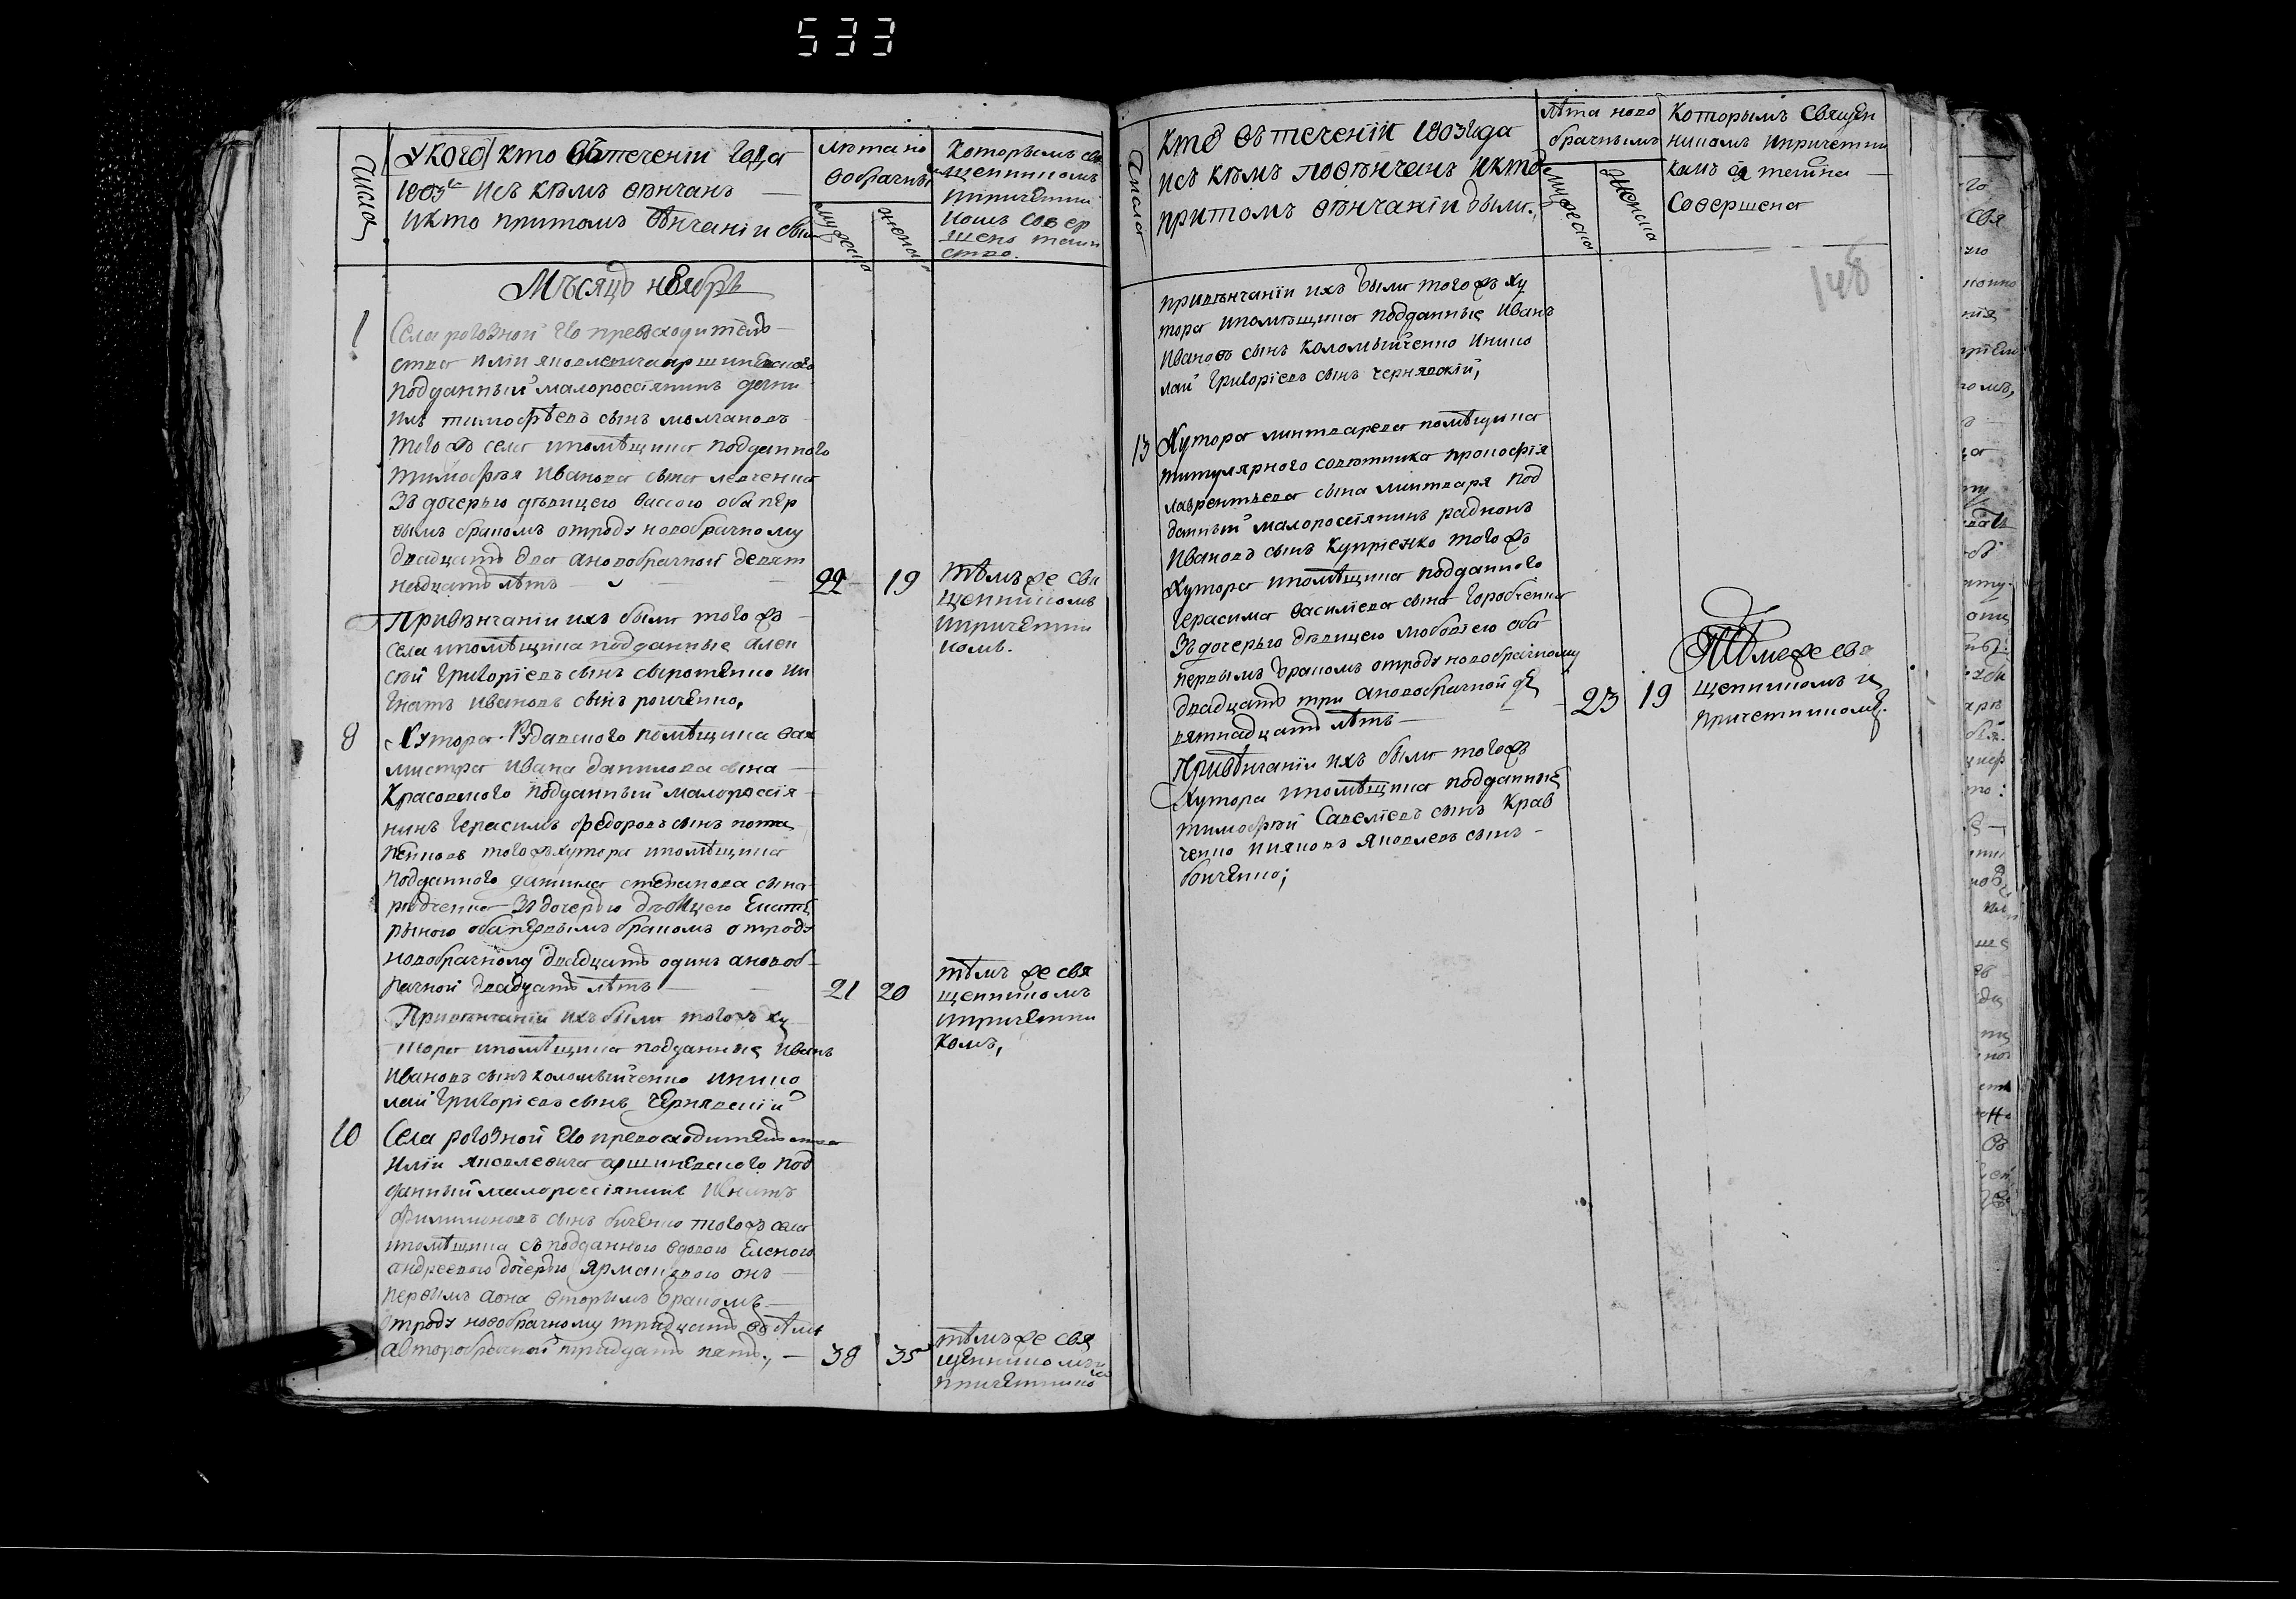 533
Числа
У кого кто въ теченіи года
1803го и съ кѣмъ вѣнчанъ
и кто притомъ вѣнчаніи были
лѣта но
вобрачнымъ
мужеска
женска
Которымъ свя
щенникомъ
и причетни
комъ совер
шено таин
ство.
Мѣсяцъ ноябрь
1
Села роговной его превосходитель
ства иліи яковлевича аршиневского
подданный малороссіянинъ дани
илъ тимофѣевъ сынъ молчановъ
того жъ села и помѣщика подданного
тимофѣя иванова сына левченка
зъ дочерью дѣвицею вассою оба пер
вымъ бракомъ отроду новобрачному
двадцать два а новобрачной девят
надцать лѣтъ
22
19
тѣмъ же свя
щенникомъ
и причетни
комъ.
При вѣнчаніи ихъ были того жъ
села и помѣщика подданные алек
сѣй григоріевъ сынъ сыротенко и и
гнатъ ивановъ сынъ
8
Хутора Рудавского помѣщика вах
мистра ивана данилова сына
Красовского подданный малороссія
нинъ герасимъ федоровъ сынъ
того жъ хутора и помѣщика
подданного данила степанова сына
зъ дочерью дѣвицею Екате
риною оба первымъ бракомъ отроду
новобрачному двадцать одинъ а новоб
рачной двадцать лѣтъ
21
20
тѣмъ же свя
щенникомъ
и причетни
комъ,
При вѣнчаніи ихъ были того жъ ху
тора и помѣщика подданные иванъ
ивановъ сынъ коломыйченко и нико
лай григоріевъ сынъ чернявскій
10
Села роговной его превосходительства
иліи яковлевича аршиневского под
данный малороссіянинъ игнатъ
филимоновъ сынъ биченко того жъ села
и помѣщика съ подданного вдовою Еленою
андреевою дочерью онъ
первымъ а она вторымъ бракомъ
отроду новобрачному тридцать
а второбрачной тридцать пять,
38
35
тѣмъ же свя
щенникомъ и
причетнико
Числа
кто въ теченіи 1803 года
и съ кѣмъ повѣнчанъ и кто
притомъ вѣнчаніи были,
лѣта ново
брачнымъ
мужеска
женска
Которымъ священ
никомъ и причетни
комъ сія тайна
совершена
148
при вѣнчаніи ихъ были того жъ ху
тора и помѣщика подданные иванъ
ивановъ сынъ коломыйченко и нико
лай григоріевъ сынъ чернявскій,
13
Хутора линтварева помѣщика
титулярного совѣтника прокофія
лаврентьева сына линтваря под
данный малороссіянинъ радионъ
ивановъ сынъ купріенко того жъ
хутора и помѣщика подданного
герасима василіева сына горобченка
зъ дочерью дѣвицею любовію оба
первымъ бракомъ отроду новобрачному
двадцать три а новобрачной де
вятнадцать лѣтъ
23
19
Тѣмъ же свя
щенникомъ и
причетникомъ.
При вѣнчаніи ихъ были того жъ
хутора и помѣщика подданные
тимофѣй савеліевъ сынъ крав
ченко и яковъ яковлевъ сынъ
бойченко;